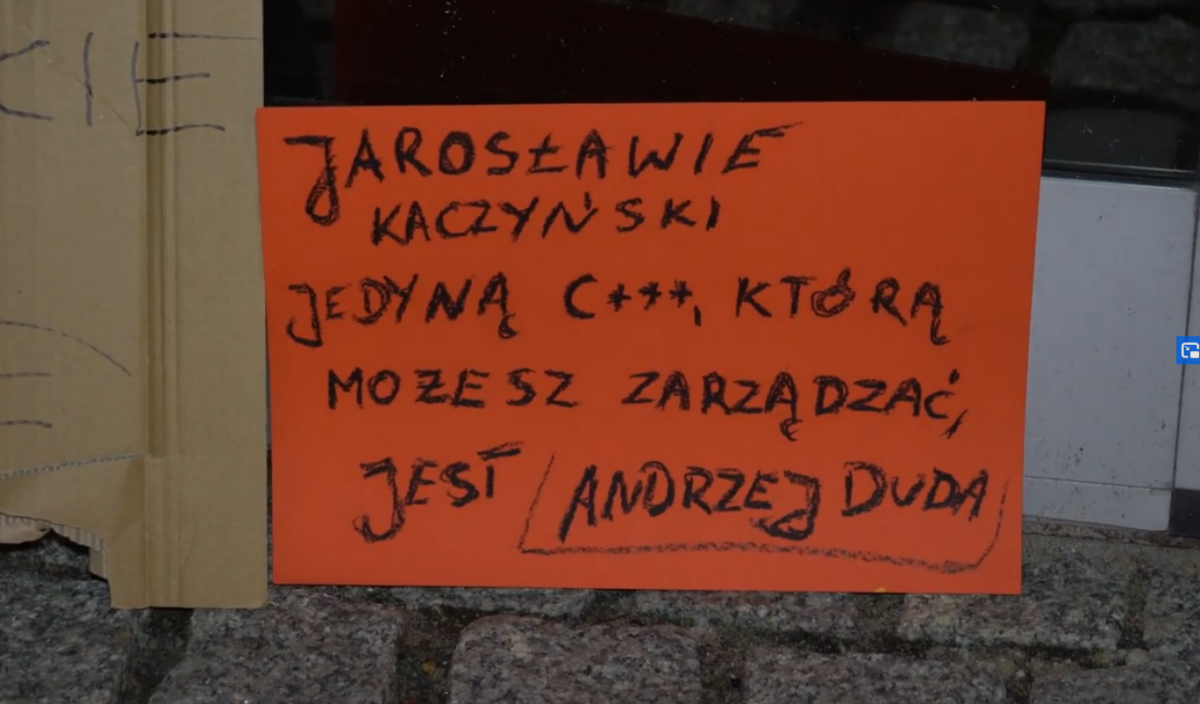 CIE
JAROSŁAWIE
KACZYŃSKI
JEDYNĄ C***, KTÓRĄ
MOŻESZ ZARZĄDZAĆ,
JEST ANDRZEJ DUDA